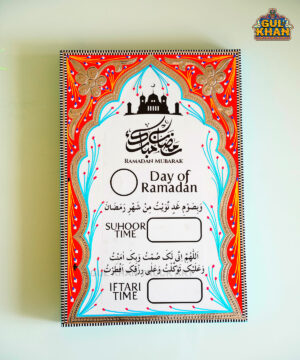 GUL
KHAN
رمضان مبارك
RAMADAN MUBARAK
Day of
Ramadan
وَبِصَوْمِ غَدٍ نَّوَيْتُ مِنْ شَهْرِ رَمَضَانَ
SUHOOR
TIME
اَللّٰهُمَّ اِنِّى لَكَ صُمْتُ وَبِكَ اٰمَنْتُ
وَعَلَيْكَ تَوَكَّلْتُ وَعَلٰى رِزْقِكَ اَفْطَرْتُ
IFTARI
TIME